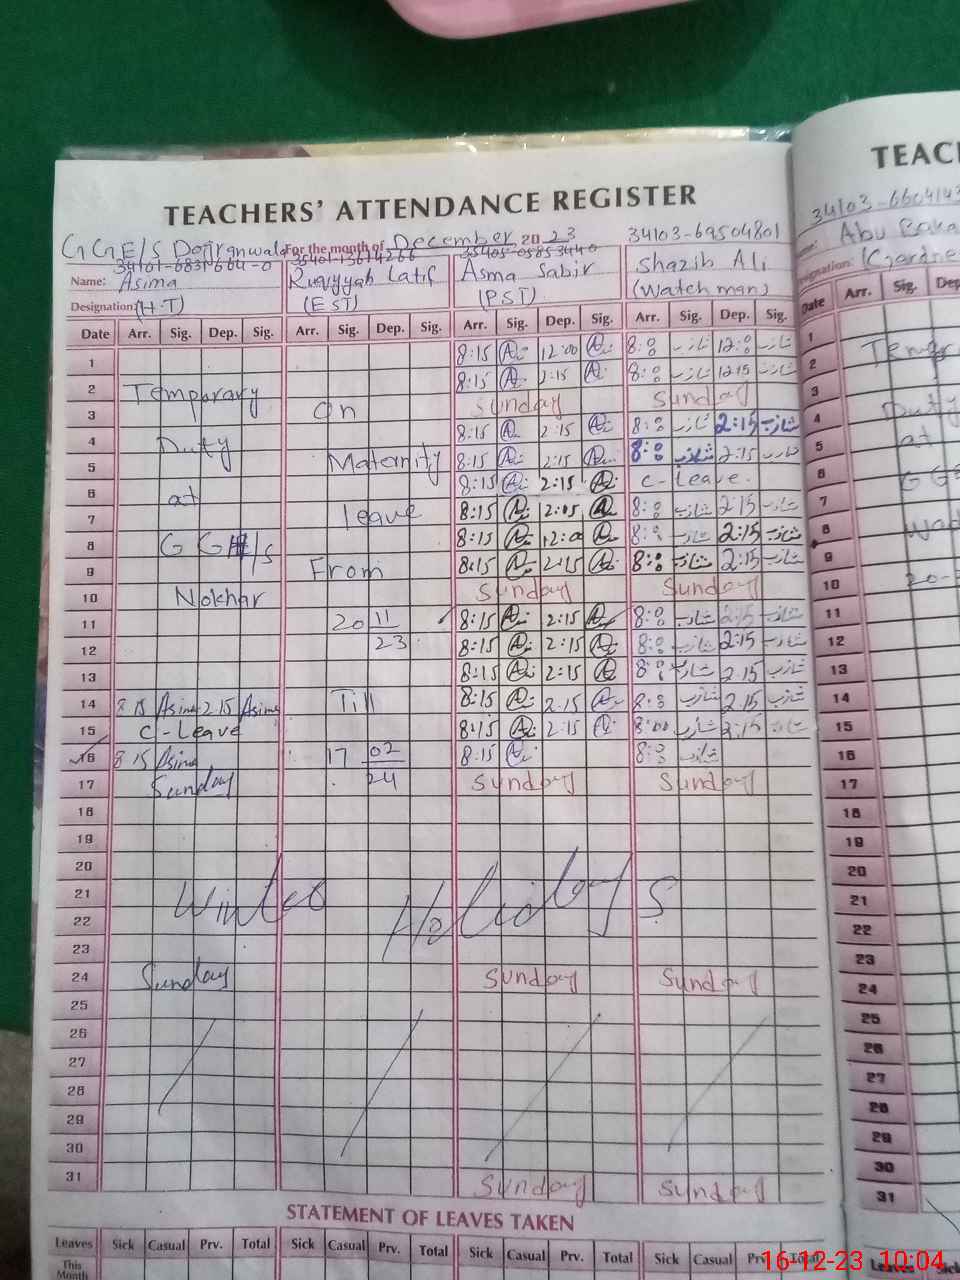 TEACHERS' ATTENDANCE REGISTER
For the month of December 20 23
34103-69504801
Name: Asima Ruqyyah Latif Asma Sabir Shazib Ali
Designation: (H.T) (EST) (PST) (Watch man)
Date Arr. Sig. Dep. Sig. Arr. Sig. Dep. Sig. Arr. Sig. Dep. Sig. Arr. Sig. Dep. Sig.
1 8:15 12:00 8:00 شازب 12:00 شازب
2 Temporary 8:15 2:15 8:00 شازب 12:15 شازب
3 on Sunday Sunday
4 Duty 8:15 2:15 8:00 شازب 2:15 شازب
5 Maternity 8:15 2:15 8:00 شازب 2:15 شازب
6 at 8:15 2:15 C-Leave.
7 leave 8:15 2:15 8:00 شازب 2:15 شازب
8 8:15 12:00 8:00 شازب 2:15 شازب
9 From 8:15 2:15 8:00 شازب 2:15 شازب
10 Nokhar Sunday Sunday
11 20 11 8:15 2:15 8:00 شازب 2:15 شازب
12 23 8:15 2:15 8:00 شازب 2:15 شازب
13 8:15 2:15 8:00 شازب 2:15 شازب
14 8 15 Asima 2 15 Asima Till 8:15 2:15 8:00 شازب 2:15 شازب
15 C-Leave 8:15 2:15 8:00 شازب 2:15 شازب
16 8 15 Asima 17 02 8:15 8:00 شازب
17 Sunday 24 Sunday Sunday
18
19
20
21 Winter Holidays
22
23
24 Sunday Sunday Sunday
25
26
27
28
29
30
31 Sunday Sunday
STATEMENT OF LEAVES TAKEN
Leaves Sick Casual Prv. Total Sick Casual Prv. Total Sick Casual Prv. Total Sick Casual Prv. Total
This Month
TEAC
Abu Baka
Date Arr. Sig. Dep
1
2
3
4 Duty
5 at
6
7
8
9
10
11
12
13
14
15
16
17
18
19
20
21
22
23
24
25
26
27
28
29
30
31
Leaves Sick
16-12-23 10:04